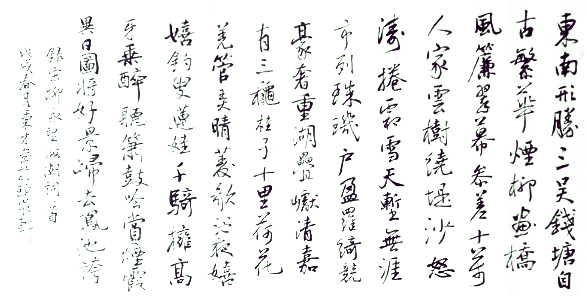 東南形勝三吳錢塘自
古繁華煙柳畫橋
風簾翠幕參差十萬
人家雲樹繞堤沙怒
濤捲霜雪天塹無涯
市列珠璣戶盈羅綺競
豪奢重湖疊巘清嘉
有三龝桂子十里荷花
羌管弄晴菱歌泛夜嬉
嬉釣叟蓮娃千騎擁高
牙乘醉聽簫鼓吟賞煙霞
異日圖將好景歸去鳳池誇
錄宋柳永望海潮詞